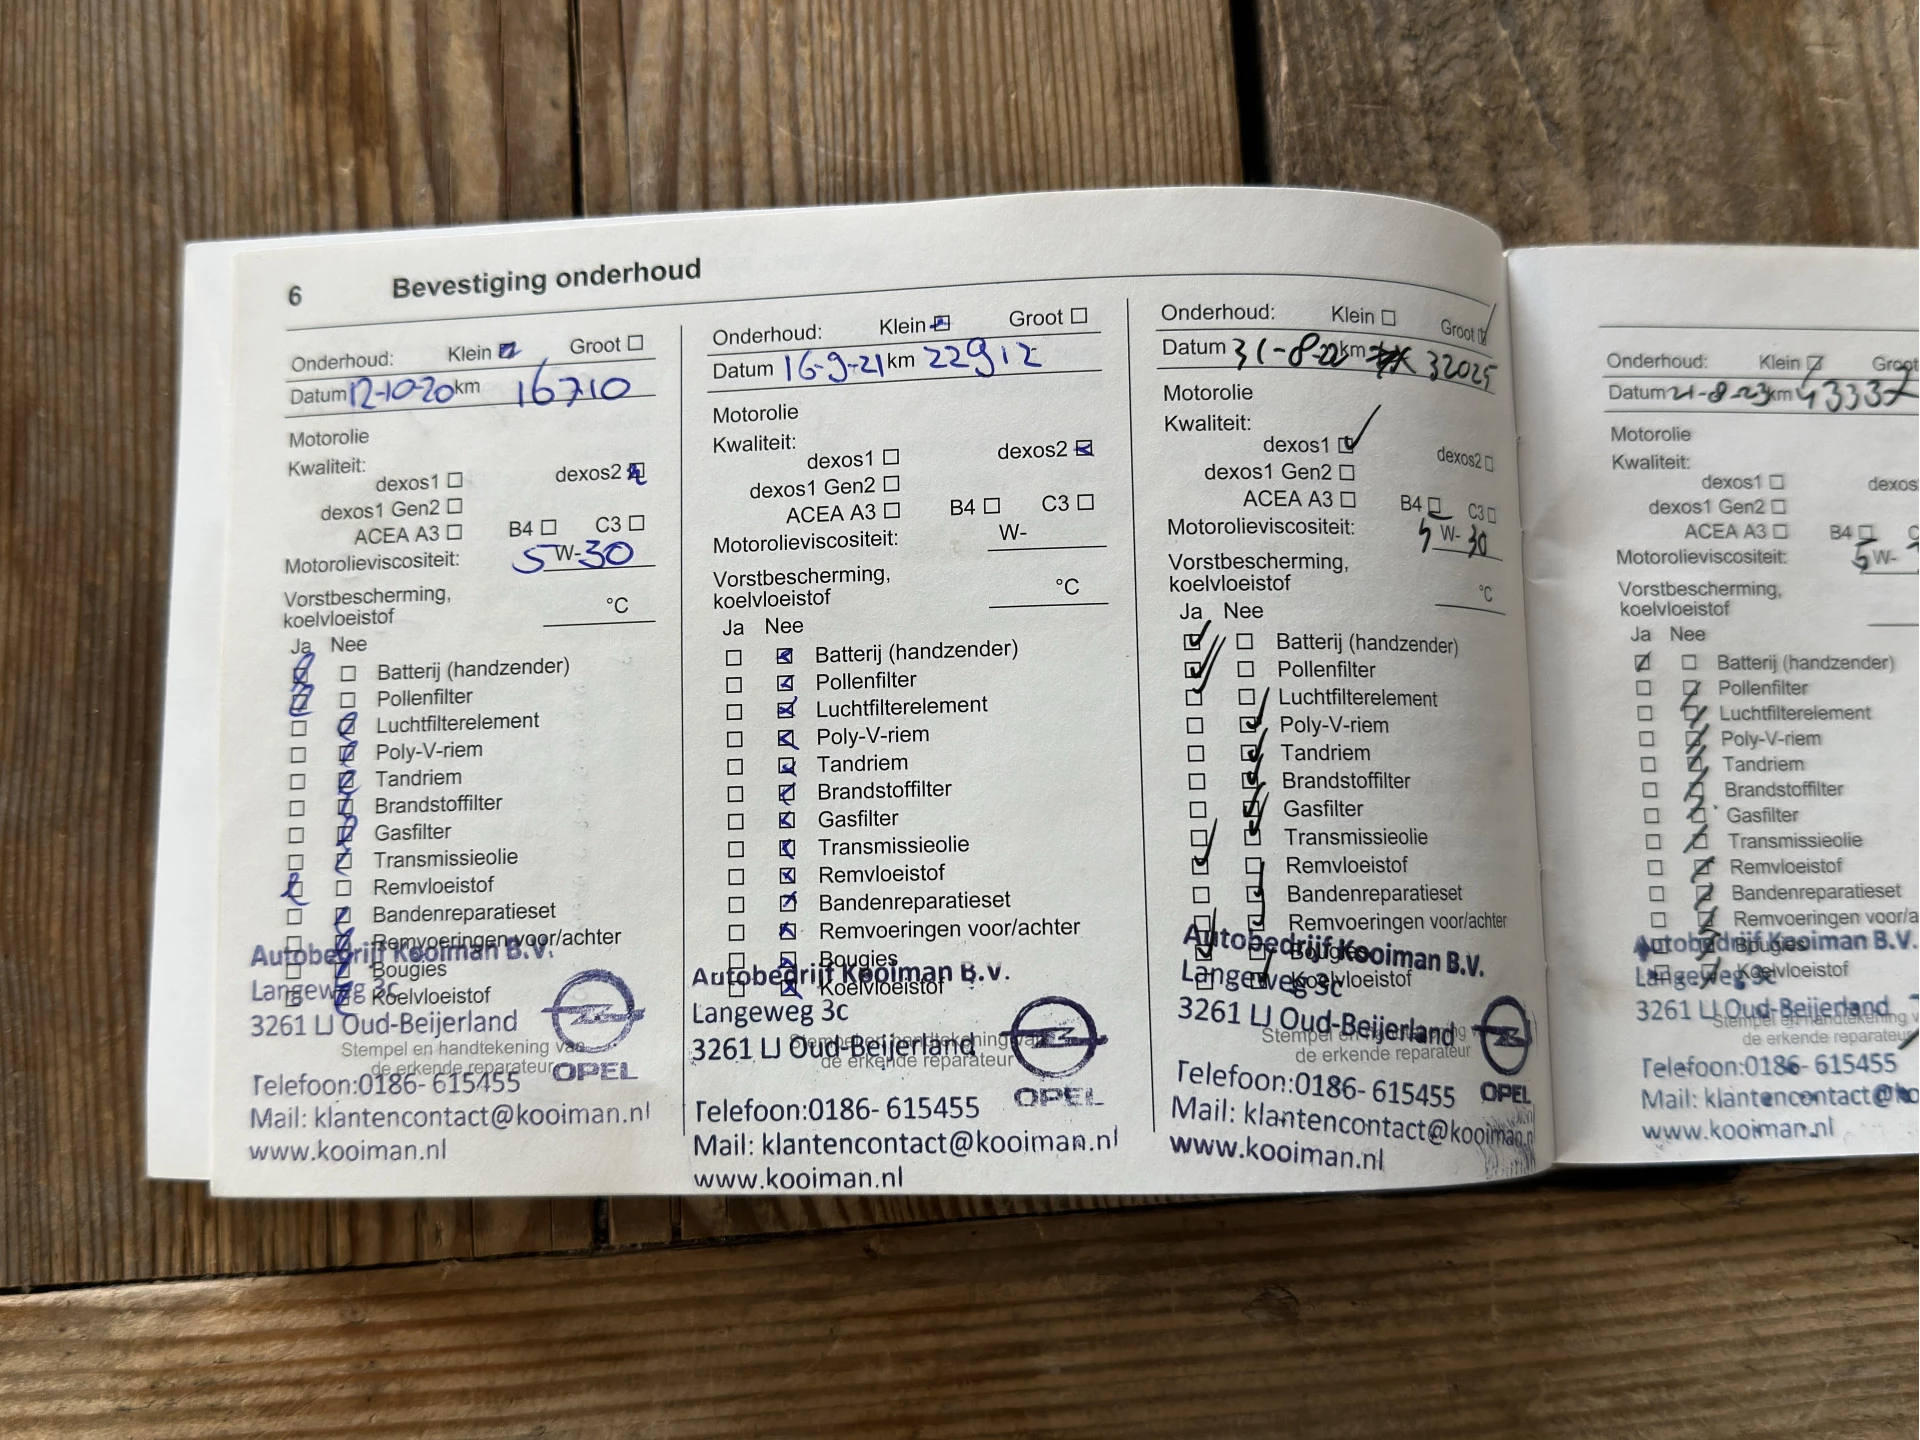 6 Bevestiging onderhoud
Onderhoud: Klein Groot
Datum 12-10-20 km 16710
Motorolie
Kwaliteit:
dexos1 dexos2
dexos1 Gen2
ACEA A3 B4 C3
Motorolieviscositeit: 5 W-30
Vorstbescherming,
koelvloeistof °C
Ja Nee
Batterij (handzender)
Pollenfilter
Luchtfilterelement
Poly-V-riem
Tandriem
Brandstoffilter
Gasfilter
Transmissieolie
Remvloeistof
Bandenreparatieset
Remvoeringen voor/achter
Bougies
Koelvloeistof
Stempel en handtekening van
de erkende reparateur
Autobedrijf Kooiman B.V.
Langeweg 3c
3261 LJ Oud-Beijerland
OPEL
Telefoon:0186- 615455
Mail: klantencontact@kooiman.nl
www.kooiman.nl
Onderhoud: Klein Groot
Datum 16-9-21 km 22912
Motorolie
Kwaliteit:
dexos1 dexos2
dexos1 Gen2
ACEA A3 B4 C3
Motorolieviscositeit: W-
Vorstbescherming,
koelvloeistof °C
Ja Nee
Batterij (handzender)
Pollenfilter
Luchtfilterelement
Poly-V-riem
Tandriem
Brandstoffilter
Gasfilter
Transmissieolie
Remvloeistof
Bandenreparatieset
Remvoeringen voor/achter
Bougies
Koelvloeistof
Stempel en handtekening van
de erkende reparateur
Autobedrijf Kooiman B.V.
Langeweg 3c
3261 LJ Oud-Beijerland
OPEL
Telefoon:0186- 615455
Mail: klantencontact@kooiman.nl
www.kooiman.nl
Onderhoud: Klein Groot
Datum 31-8-22 km 32025
Motorolie
Kwaliteit:
dexos1 dexos2
dexos1 Gen2
ACEA A3 B4 C3
Motorolieviscositeit: 5 W-30
Vorstbescherming,
koelvloeistof °C
Ja Nee
Batterij (handzender)
Pollenfilter
Luchtfilterelement
Poly-V-riem
Tandriem
Brandstoffilter
Gasfilter
Transmissieolie
Remvloeistof
Bandenreparatieset
Remvoeringen voor/achter
Bougies
Koelvloeistof
Stempel en handtekening
de erkende reparateur
Autobedrijf Kooiman B.V.
Langeweg 3c
3261 LJ Oud-Beijerland
OPEL
Telefoon:0186- 615455
Mail: klantencontact@kooiman.nl
www.kooiman.nl
Onderhoud: Klein Groot
Datum 21-8-23 km 43337
Motorolie
Kwaliteit:
dexos1 dexos
dexos1 Gen2
ACEA A3 B4 C
Motorolieviscositeit: 5 W-
Vorstbescherming,
koelvloeistof
Ja Nee
Batterij (handzender)
Pollenfilter
Luchtfilterelement
Poly-V-riem
Tandriem
Brandstoffilter
Gasfilter
Transmissieolie
Remvloeistof
Bandenreparatieset
Remvoeringen voor/a
Bougies
Koelvloeistof
Stempel en handtekening
de erkende reparateur
Autobedrijf Kooiman B.V.
Langeweg 3c
3261 LJ Oud-Beijerland
Telefoon:0186- 615455
Mail: klantencontact@ko
www.kooiman.nl